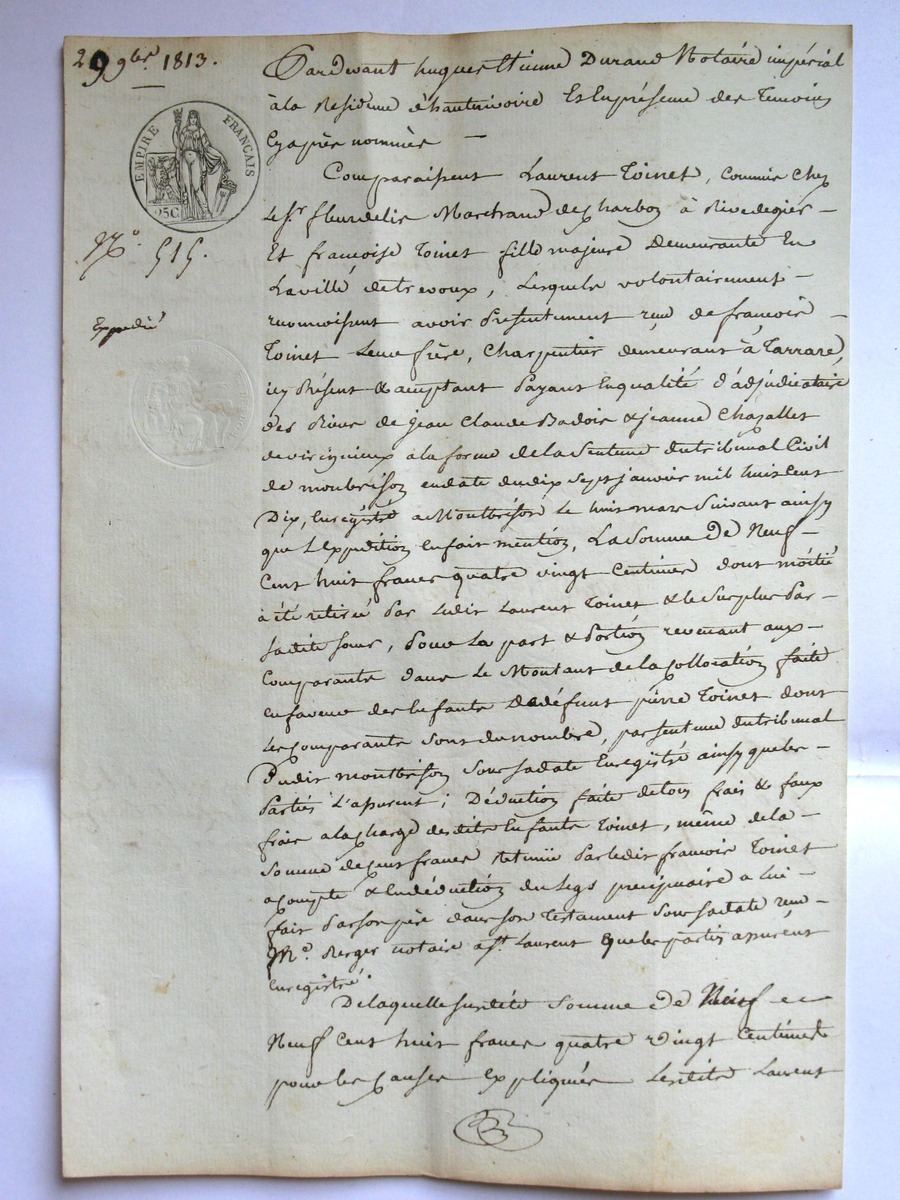 29 9bre 1813.
EMPIRE FRANÇAIS
25C
No. 515.
Expedié
Pardevant hugues Etienne Durand Notaire impérial
à la Residence de Enpresence des Temoins
Cy après nommés —
Comparaissent Laurent Toinet, Commis Chez
le Sr. fleurdelix Marchand de Charbon à Rivedegier —
Et francoise Toinet fille majeure demeurante En
La ville de trevoux, Lesquels volontairement —
reconnoissent avoir Presentement reçu de francois —
Toinet Leur frère, Charpentier demeurant à Tarrare,
icy Présent & acceptant Payant En qualité d'adjudicataire
des Biens de jean Claude Badois & jeanne Chazallet
de viricivieux à la forme de la Sentence du tribunal Civil
de montbrison en date du dix Sept janvier mil huit Cent
Dix, Enregistré a Montbrison le huit mars Suivant ainsy
que L'Expedition En fait mention, La Somme de Neuf —
Cent huit francs quatre vingt Centimes dont moitié
à été retiré Par Ledit Laurent Toinet & le Surplus Par —
sadite soeur, Pour La part & Portion revenant aux —
Comparants dans Le Montant de la Collocation faite
en faveur des Enfants De défunt pierre Toinet dont
Les Comparants Sont du nombre, par sentence du tribunal
Dudit montbrison Sous sa date Enregistré ainsy que les —
Parties L'assurent; Déduction faite de tous frais & faux
frais a la Charge desdits Enfants Toinet, même de la —
Somme de Cent francs retenüe Par ledit francois Toinet
a Compte & En déduction du Legs precipuaire a Lui —
fait Par son père dans son Testament Sous sa date reçu —
Me. Berger notaire a St. Laurent Que les partis assurent
Enregistré.
De laquelle susdite Somme de Neuf
Neuf Cent huit francs quatre vingt Centimes
pour les Causes Expliquées Lesdits Laurent